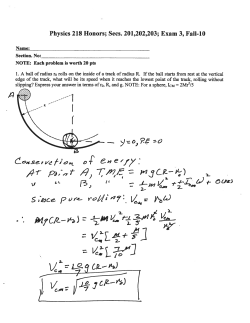 Physics 218 Honors; Secs. 201,202,203; Exam 3, Fall-10
Name:
Section. No:
NOTE: Each problem is worth 20 pts
1. A ball of radius r₀ rolls on the inside of a track of radius R. If the ball starts from rest at the vertical
edge of the track, what will be its speed when it reaches the lowest point of the track, rolling without
slipping? Express your answer in terms of r₀, R, and g. NOTE: For a sphere, I_CM = 2Mr²/5
A
B
y=0, PE=0
Conservation of energy:
AT Point A, T.M.E = mg(R-r₀)
" " B, " = ½mV_cm² + ½I_cm ω² + 0(PE)
Since pure rolling: V_cm = r₀ω
∴ mg(R-r₀) = ½mV_cm² + ½·⅖mr₀² V_cm²/r₀²
= V_cm² [M/2 + M/5]
= V_cm² [7M/10]
V_cm² = 10/7 g(R-r₀)
V_cm = √(10/7 g(R-r₀))